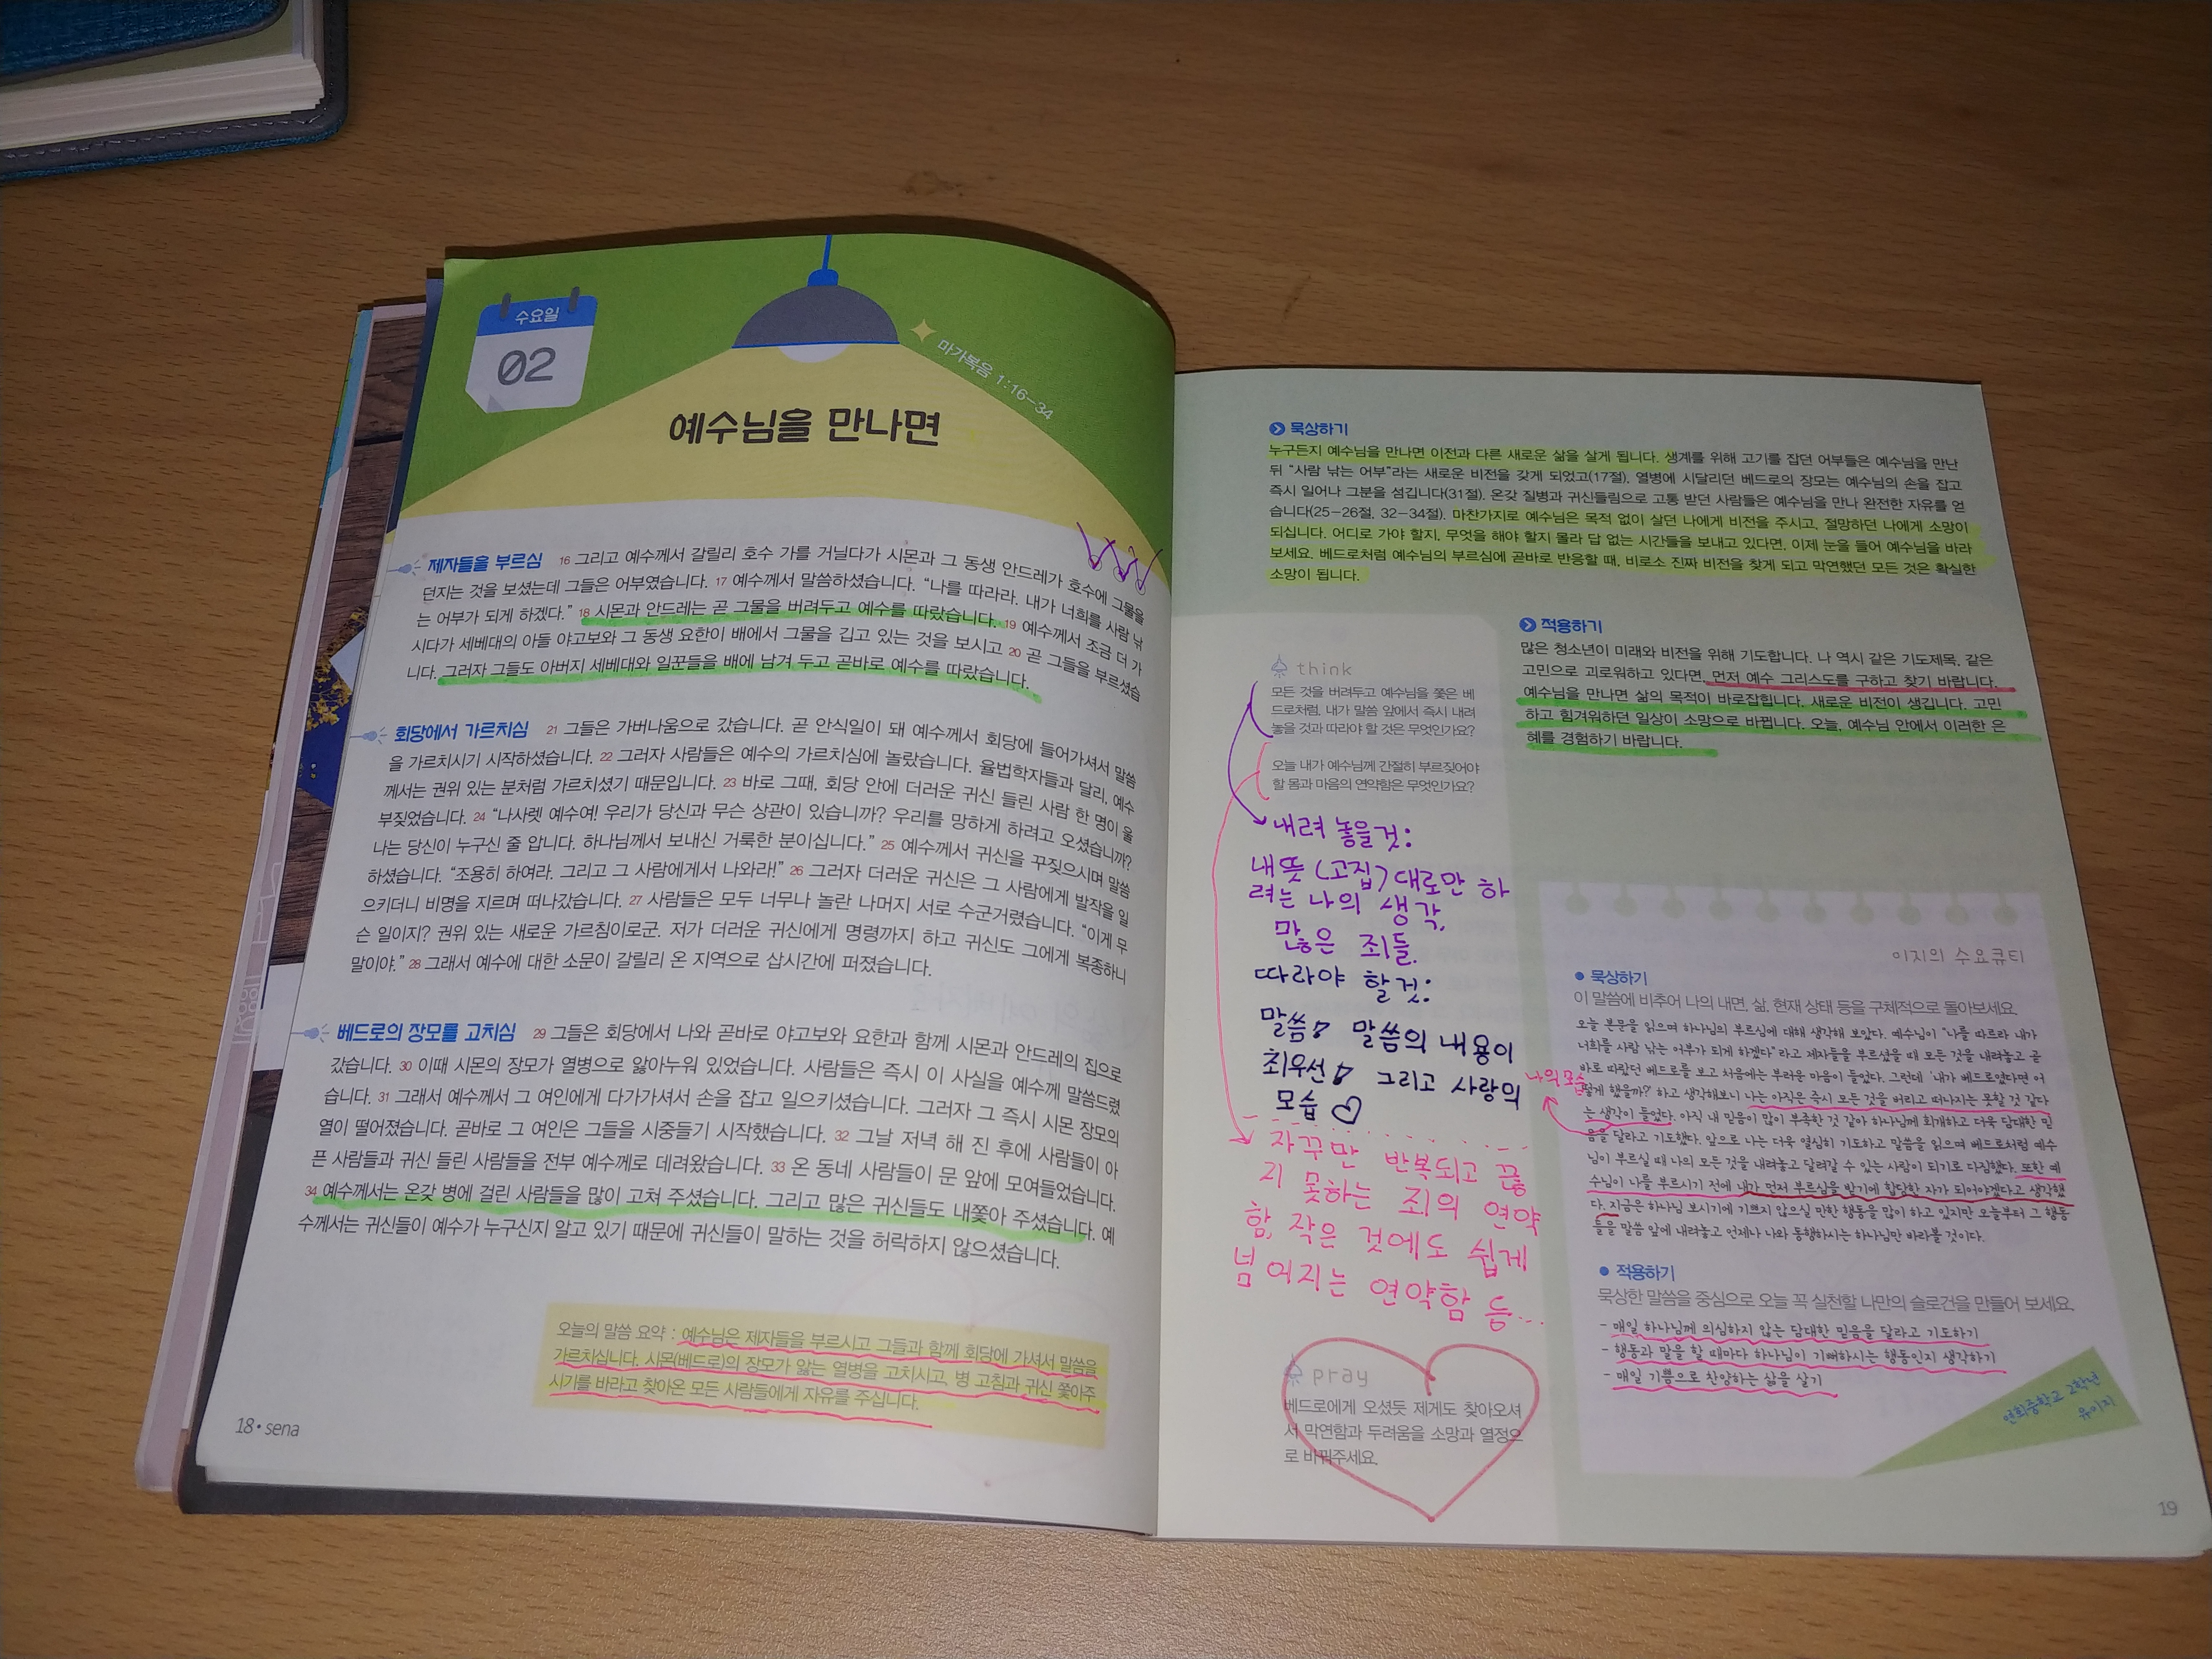 수요일
02
마가복음 1:16-34
예수님을 만나면
제자들을 부르심 16 그리고 예수께서 갈릴리 호수 가를 거닐다가 시몬과 그 동생 안드레가 호수에 그물을
던지는 것을 보셨는데 그들은 어부였습니다. 17 예수께서 말씀하셨습니다. “나를 따라라. 내가 너희를 사람 낚
는 어부가 되게 하겠다.” 18 시몬과 안드레는 곧 그물을 버려두고 예수를 따랐습니다. 19 예수께서 조금 더 가
시다가 세베대의 아들 야고보와 그 동생 요한이 배에서 그물을 깁고 있는 것을 보시고 20 곧 그들을 부르셨습
니다. 그러자 그들도 아버지 세베대와 일꾼들을 배에 남겨 두고 곧바로 예수를 따랐습니다.
회당에서 가르치심 21 그들은 가버나움으로 갔습니다. 곧 안식일이 돼 예수께서 회당에 들어가셔서 말씀
을 가르치시기 시작하셨습니다. 22 그러자 사람들은 예수의 가르치심에 놀랐습니다. 율법학자들과 달리, 예수
께서는 권위 있는 분처럼 가르치셨기 때문입니다. 23 바로 그때, 회당 안에 더러운 귀신 들린 사람 한 명이 울
부짖었습니다. 24 “나사렛 예수여! 우리가 당신과 무슨 상관이 있습니까? 우리를 망하게 하려고 오셨습니까?
나는 당신이 누구신 줄 압니다. 하나님께서 보내신 거룩한 분이십니다.” 25 예수께서 귀신을 꾸짖으시며 말씀
하셨습니다. “조용히 하여라. 그리고 그 사람에게서 나와라!” 26 그러자 더러운 귀신은 그 사람에게 발작을 일
으키더니 비명을 지르며 떠나갔습니다. 27 사람들은 모두 너무나 놀란 나머지 서로 수군거렸습니다. “이게 무
슨 일이지? 권위 있는 새로운 가르침이로군. 저가 더러운 귀신에게 명령까지 하고 귀신도 그에게 복종하니
말이야.” 28 그래서 예수에 대한 소문이 갈릴리 온 지역으로 삽시간에 퍼졌습니다.
베드로의 장모를 고치심 29 그들은 회당에서 나와 곧바로 야고보와 요한과 함께 시몬과 안드레의 집으로
갔습니다. 30 이때 시몬의 장모가 열병으로 앓아누워 있었습니다. 사람들은 즉시 이 사실을 예수께 말씀드렸
습니다. 31 그래서 예수께서 그 여인에게 다가가셔서 손을 잡고 일으키셨습니다. 그러자 그 즉시 시몬 장모의
열이 떨어졌습니다. 곧바로 그 여인은 그들을 시중들기 시작했습니다. 32 그날 저녁 해 진 후에 사람들이 아
픈 사람들과 귀신 들린 사람들을 전부 예수께로 데려왔습니다. 33 온 동네 사람들이 문 앞에 모여들었습니다.
34 예수께서는 온갖 병에 걸린 사람들을 많이 고쳐 주셨습니다. 그리고 많은 귀신들도 내쫓아 주셨습니다. 예
수께서는 귀신들이 예수가 누구신지 알고 있기 때문에 귀신들이 말하는 것을 허락하지 않으셨습니다.
오늘의 말씀 요약 : 예수님은 제자들을 부르시고 그들과 함께 회당에 가셔서 말씀을
가르치십니다. 시몬(베드로)의 장모가 앓는 열병을 고치시고, 병 고침과 귀신 쫓아주
시기를 바라고 찾아온 모든 사람들에게 자유를 주십니다.
18•sena
묵상하기
누구든지 예수님을 만나면 이전과 다른 새로운 삶을 살게 됩니다. 생계를 위해 고기를 잡던 어부들은 예수님을 만난
뒤 “사람 낚는 어부”라는 새로운 비전을 갖게 되었고(17절), 열병에 시달리던 베드로의 장모는 예수님의 손을 잡고
즉시 일어나 그분을 섬깁니다(31절). 온갖 질병과 귀신들림으로 고통 받던 사람들은 예수님을 만나 완전한 자유를 얻
습니다(25-26절, 32-34절). 마찬가지로 예수님은 목적 없이 살던 나에게 비전을 주시고, 절망하던 나에게 소망이
되십니다. 어디로 가야 할지, 무엇을 해야 할지 몰라 답 없는 시간들을 보내고 있다면, 이제 눈을 들어 예수님을 바라
보세요. 베드로처럼 예수님의 부르심에 곧바로 반응할 때, 비로소 진짜 비전을 찾게 되고 막연했던 모든 것은 확실한
소망이 됩니다.
think
모든 것을 버려두고 예수님을 쫓은 베
드로처럼, 내가 말씀 앞에서 즉시 내려
놓을 것과 따라야 할 것은 무엇인가요?
오늘 내가 예수님께 간절히 부르짖어야
할 몸과 마음의 연약함은 무엇인가요?
내려 놓을것:
내 뜻 (고집) 대로만 하
려는 나의 생각,
많은 죄들.
따라야 할것:
말씀! 말씀의 내용이
최우선! 그리고 사랑의
모습 ♡
자꾸만 반복되고 끊
지 못하는 죄의 연약
함, 작은 것에도 쉽게
넘어지는 연약함 등...
pray
베드로에게 오셨듯 제게도 찾아오셔
서 막연함과 두려움을 소망과 열정으
로 바꿔주세요.
적용하기
많은 청소년이 미래와 비전을 위해 기도합니다. 나 역시 같은 기도제목, 같은
고민으로 괴로워하고 있다면, 먼저 예수 그리스도를 구하고 찾기 바랍니다.
예수님을 만나면 삶의 목적이 바로잡힙니다. 새로운 비전이 생깁니다. 고민
하고 힘겨워하던 일상이 소망으로 바뀝니다. 오늘, 예수님 안에서 이러한 은
혜를 경험하기 바랍니다.
이지의 수요큐티
• 묵상하기
이 말씀에 비추어 나의 내면, 삶, 현재 상태 등을 구체적으로 돌아보세요.
오늘 본문을 읽으며 하나님의 부르심에 대해 생각해 보았다. 예수님이 “나를 따르라 내가
너희를 사람 낚는 어부가 되게 하겠다”라고 제자들을 부르셨을 때 모든 것을 내려놓고 곧
바로 따랐던 베드로를 보고 처음에는 부러운 마음이 들었다. 그런데 ‘내가 베드로였다면 어
떻게 했을까?’ 하고 생각해보니 나는 아직은 즉시 모든 것을 버리고 떠나지는 못할 것 같다
나의 모습
는 생각이 들었다. 아직 내 믿음이 많이 부족한 것 같아 하나님께 회개하고 더욱 담대한 믿
음을 달라고 기도했다. 앞으로 나는 더욱 열심히 기도하고 말씀을 읽으며 베드로처럼 예수
님이 부르실 때 나의 모든 것을 내려놓고 달려갈 수 있는 사람이 되기로 다짐했다. 또한 예
수님이 나를 부르시기 전에 내가 먼저 부르심을 받기에 합당한 자가 되어야겠다고 생각했
다. 지금은 하나님 보시기에 기쁘지 않으실 만한 행동을 많이 하고 있지만 오늘부터 그 행동
들을 말씀 앞에 내려놓고 언제나 나와 동행하시는 하나님만 바라볼 것이다.
• 적용하기
묵상한 말씀을 중심으로 오늘 꼭 실천할 나만의 슬로건을 만들어 보세요.
- 매일 하나님께 의심하지 않는 담대한 믿음을 달라고 기도하기
- 행동과 말을 할 때마다 하나님이 기뻐하시는 행동인지 생각하기
- 매일 기쁨으로 찬양하는 삶을 살기
연희중학교 2학년
유이지
19